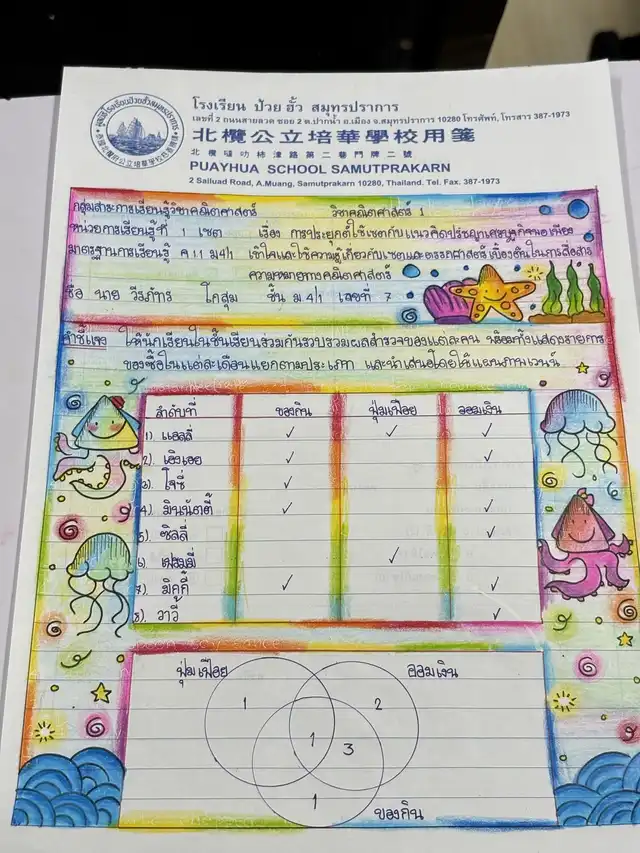 โรงเรียน ป้วย ฮั้ว สมุทรปราการ
เลขที่ 2 ถนนสายลวด ซอย 2 ต.ปากน้ำ อ.เมือง จ.สมุทรปราการ 10280 โทรศัพท์, โทรสาร 387-1973
北欖公立培華學校用箋
北欖哒叻柿津路第二巷門牌二號
PUAYHUA SCHOOL SAMUTPRAKARN
2 Salluad Road, A.Muang, Samutprakarn 10280, Thailand. Tel. Fax. 387-1973
กลุ่มสาระการเรียนรู้วิชาคณิตศาสตร์ วิชาคณิตศาสตร์ 1
หน่วยการเรียนรู้ที่ 1 เซต เรื่อง การประยุกต์ใช้เซตกับแนวคิดปรัชญาเศรษฐกิจพอเพียง
มาตรฐานการเรียนรู้ ค 1.1 ม4/1 เข้าใจและใช้ความรู้เกี่ยวกับเซตและตรรกศาสตร์เบื้องต้นในการสื่อสาร
ความหมายทางคณิตศาสตร์
ชื่อ นาย วีรภัทร โกสุม ชั้น ม.4/1 เลขที่ 7
คำชี้แจง ให้นักเรียนในชั้นเรียนร่วมกันรวบรวมผลสำรวจของแต่ละคน พร้อมทั้งแสดงรายการ
ของซื้อในแต่ละเดือนแยกตามประเภท และนำเสนอโดยใช้แผนภาพเวนน์
ลำดับที่ ของกิน ฟุ่มเฟือย ออมเงิน
1) แอลลี่ ✓ ✓ ✓
2) เอิงเอย ✓ ✓
3) โจซี่ ✓
4) มินนัตตี้ ✓ ✓
5) ซิลลี่ ✓
6) เฟรมมี่ ✓
7) มิกกี้ ✓ ✓
8) วาวี ✓
ฟุ่มเฟือย ออมเงิน
1 2
1 3
1
ของกิน